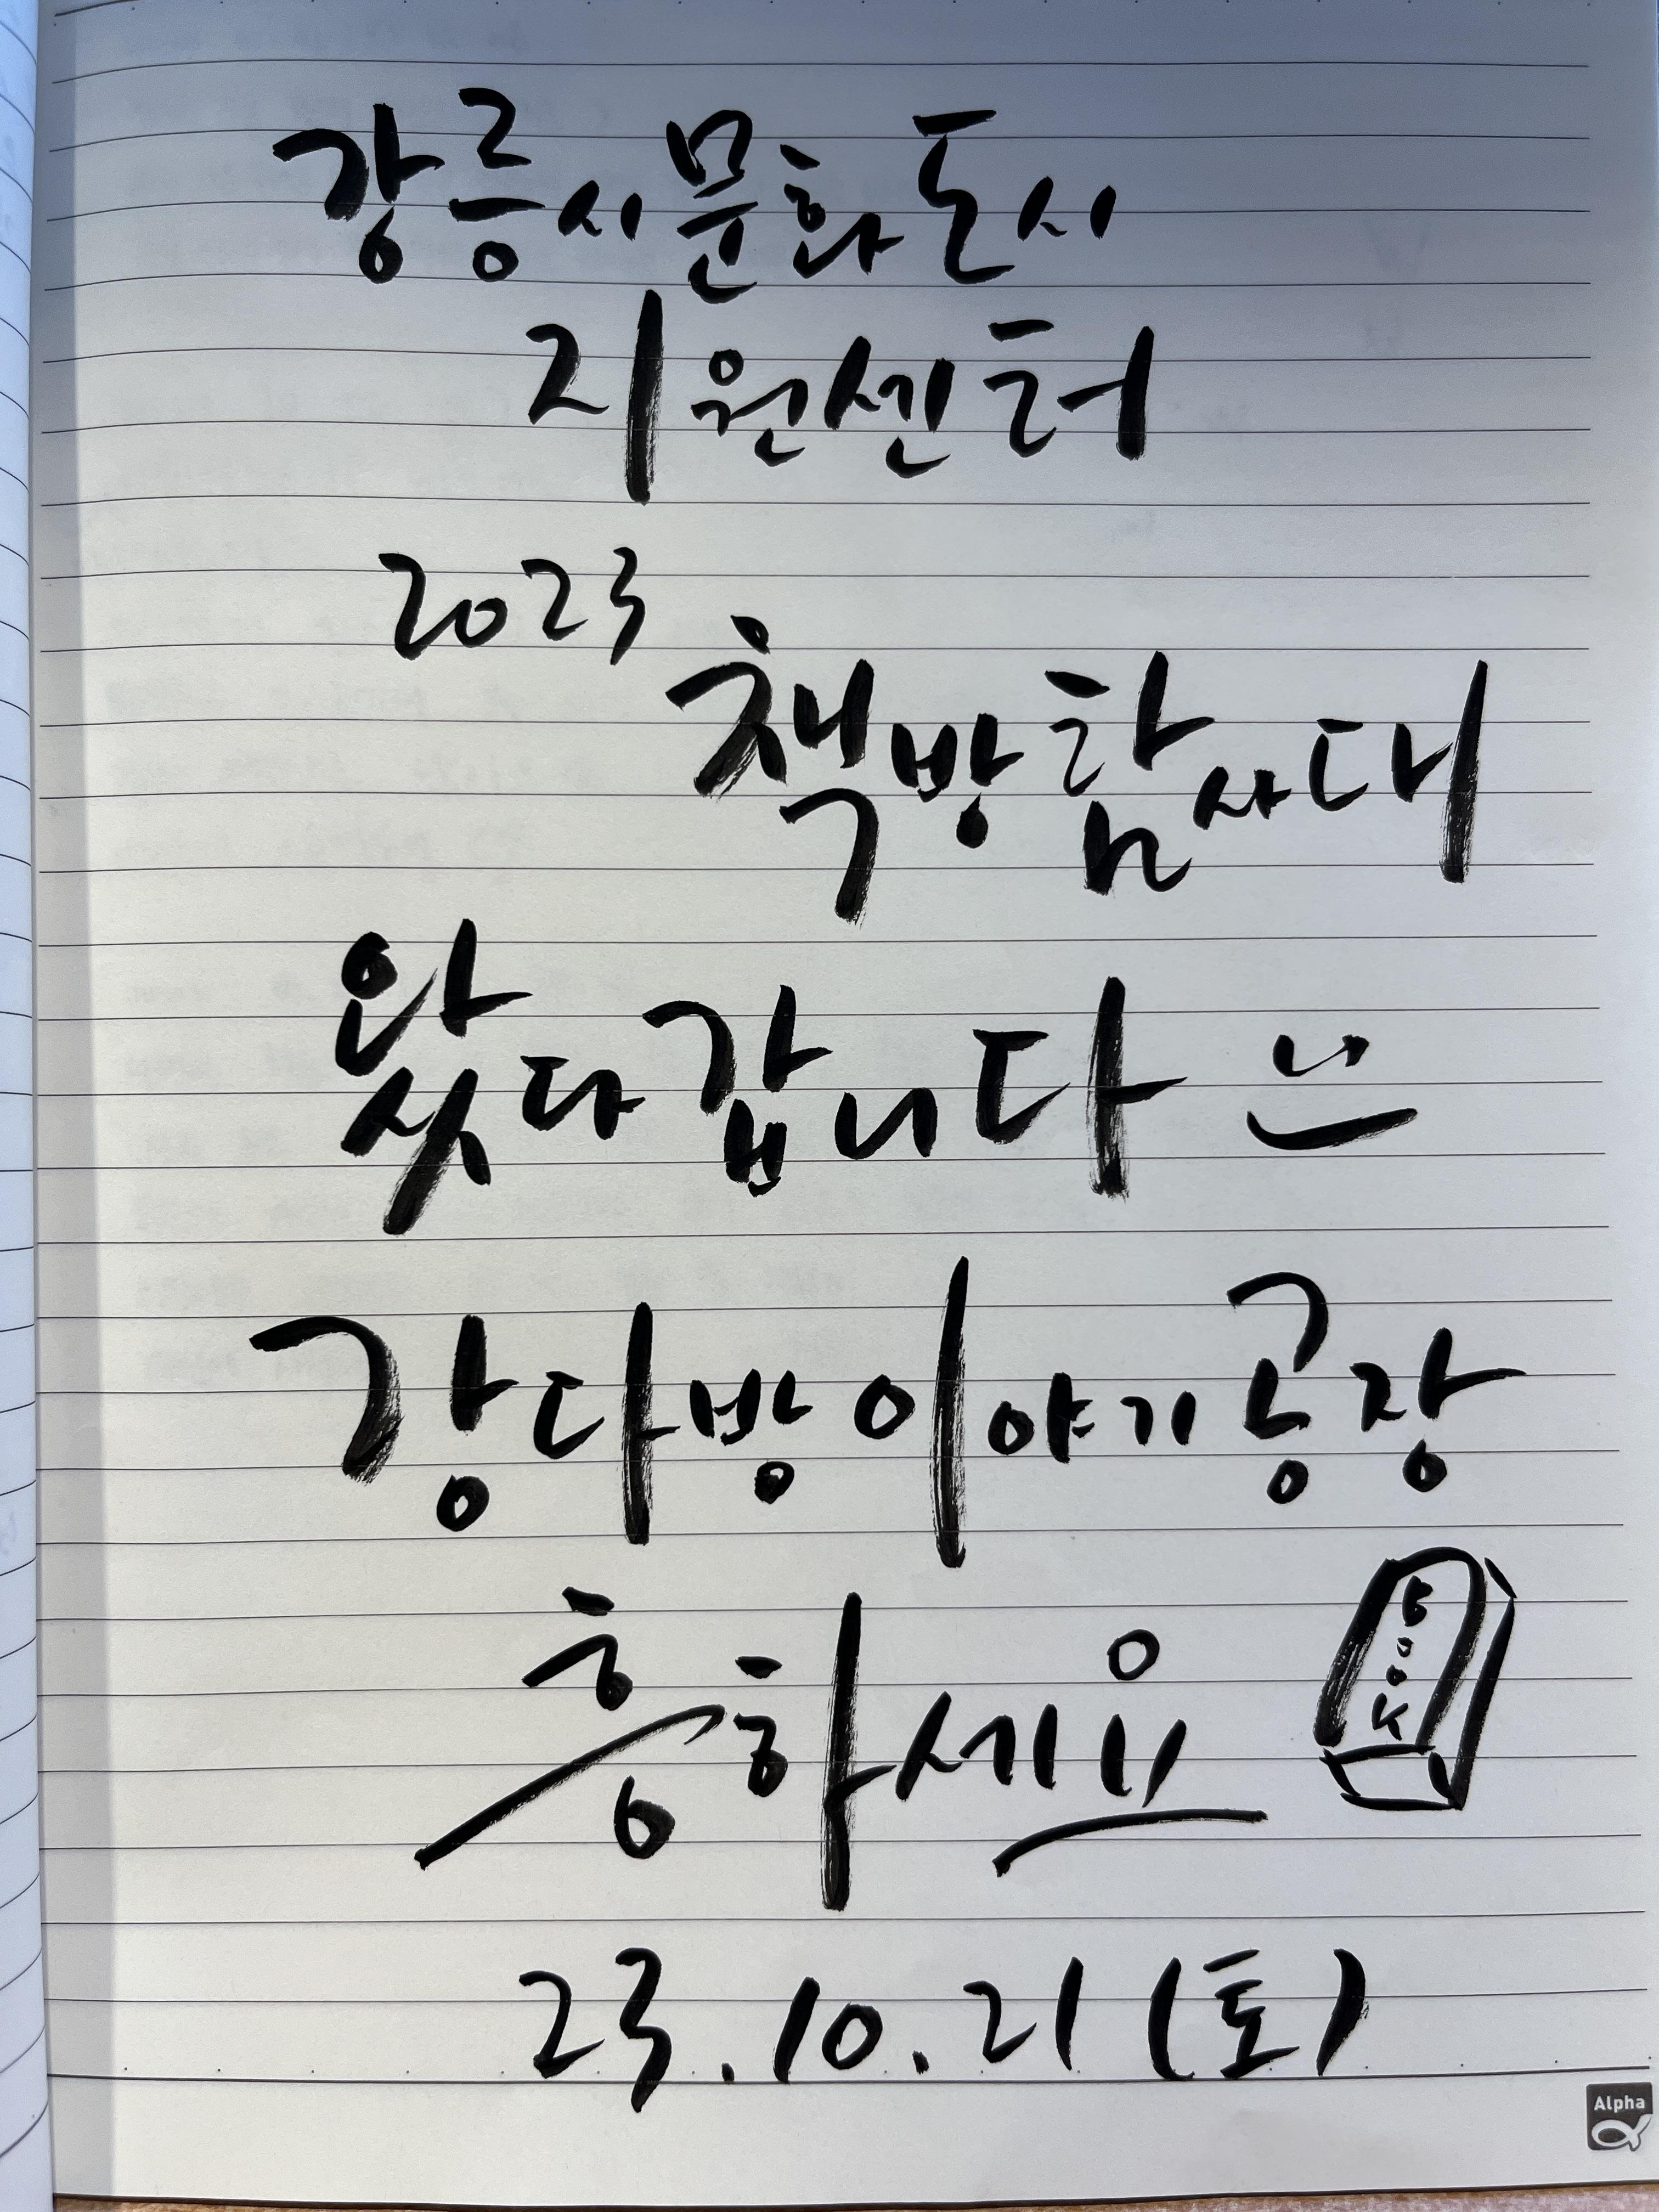 강릉시문화도시
지원센터
2023
책방탐사대
왔다갑니다
강다방이야기공장
흥하세요
BOOK
23.10.21(토)
Alpha